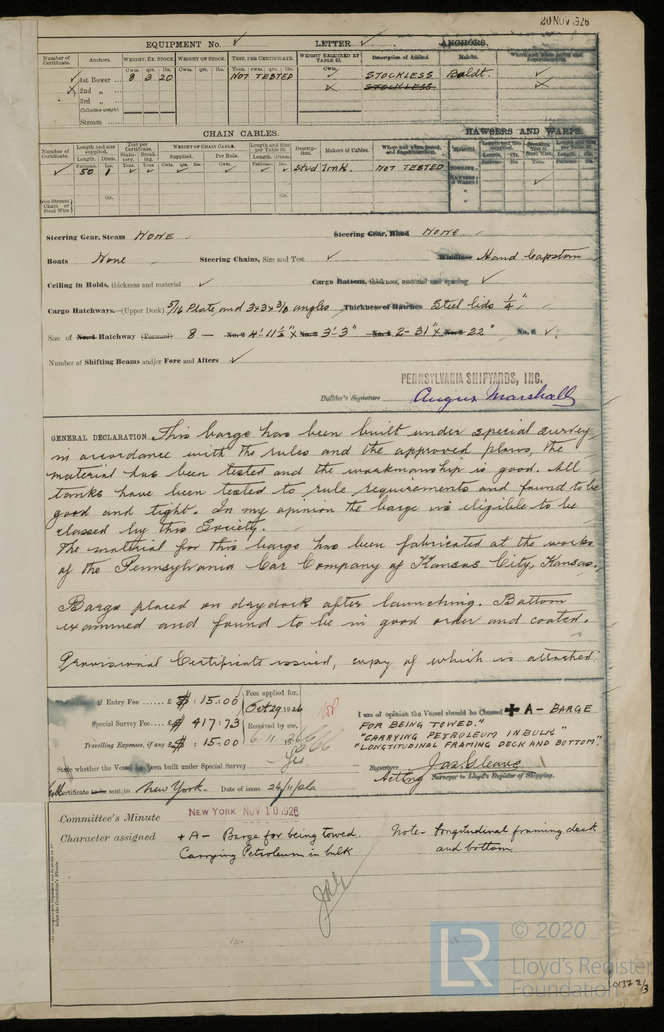 20 NOV 1926
EQUIPMENT No. ✓ LETTER ✓ ANCHORS.
Number of Certificate. Anchors. WEIGHT, EX. STOCK WEIGHT OF STOCK. TEST, PER CERTIFICATE. WEIGHT REQUIRED BY TABLE 31. Description of Anchor. Makers.
Cwts. qrs. lbs. Cwts. qrs. lbs. Tons. cwts. qrs. lbs. Cwts.
✓ 1st Bower ... 8 3 20 NOT TESTED ✓ STOCKLESS Baldt. ✓
2nd „ ... STOCKLESS
3rd „ ...
Collective weight.
Stream ...
CHAIN CABLES. HAWSERS AND WARPS.
Number of Certificate. Length and size supplied. Test per Certificate. WEIGHT OF CHAIN CABLE. Length and size per Table 31. Description. Makers of Cables. Where and when tested, and Superintendent. Material. Length and size supplied. Length and size per Table 31.
Length. Diam. Supplied. Per Rule. Length. Diam.
✓ 50 1 ✓ ✓ ✓ ✓ ✓ ✓ Stud Link ✓ NOT TESTED
Iron Stream Chain or Steel Wire
Steering Gear, Steam NONE Steering Gear, Hand NONE.
Boats None Steering Chains, Size and Test ✓ Windlass Hand Capstan
Ceiling in Holds, thickness and material ✓ Cargo Battens, thickness, material and spacing ✓
Cargo Hatchways.—(Upper Deck) 5/16 Plate and 3x3x3/8 angles Thickness of Hatches Steel lids 1/4"
Size of No. 1 Hatchway (Forward) 8 — No. 2 4'-11½" X No. 3 3'-3" No. 4 2-31" X No. 5 22" No. 6 ✓.
Number of Shifting Beams and/or Fore and Afters ✓
PENNSYLVANIA SHIPYARDS, INC.
Builder's Signature Angus Marshall
GENERAL DECLARATION This barge has been built under special survey,
in accordance with the rules and the approved plans, the
material has been tested and the workmanship is good. All
tanks have been tested to rule requirements and found to be
good and tight. In my opinion the barge is eligible to be
classed by this Society.
The material for this barge has been fabricated at the works
of the Pennsylvania Car Company of Kansas City, Kansas.
Barge placed on drydock after launching. Bottom
examined and found to be in good order and coated.
Provisional Certificate issued, copy of which is attached.
of Entry Fee ...... £ $ : 15 : 00 Fees applied for,
Oct 29 1926
Special Survey Fee .... £ $ 417 : 73 Received by me,
Travelling Expenses, if any £ $ : 15 : 00 6 . 11 19 26
I am of opinion the Vessel should be Classed + A - BARGE
FOR BEING TOWED."
"CARRYING PETROLEUM IN BULK"
"LONGITUDINAL FRAMING DECK AND BOTTOM".
State whether the Vessel has been built under Special Survey Yes.
Signature Jas. Gleave
Acting Surveyor to Lloyd's Register of Shipping.
Certificate to be sent to New York. Date of issue 24/11/26
Committee's Minute NEW YORK NOV 10 1926
Character assigned + A - Barge for being towed. Note - Longitudinal framing deck
Carrying Petroleum in bulk and bottom
LR © 2020
Lloyd's Register
Foundation